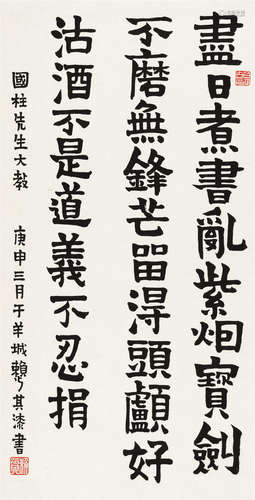 盡日煮書亂紫烟寶劍
不磨無鋒芒留得頭顱好
沽酒不是道義不忍捐
國柱先生大教 庚申三月于羊城賴少其漆書